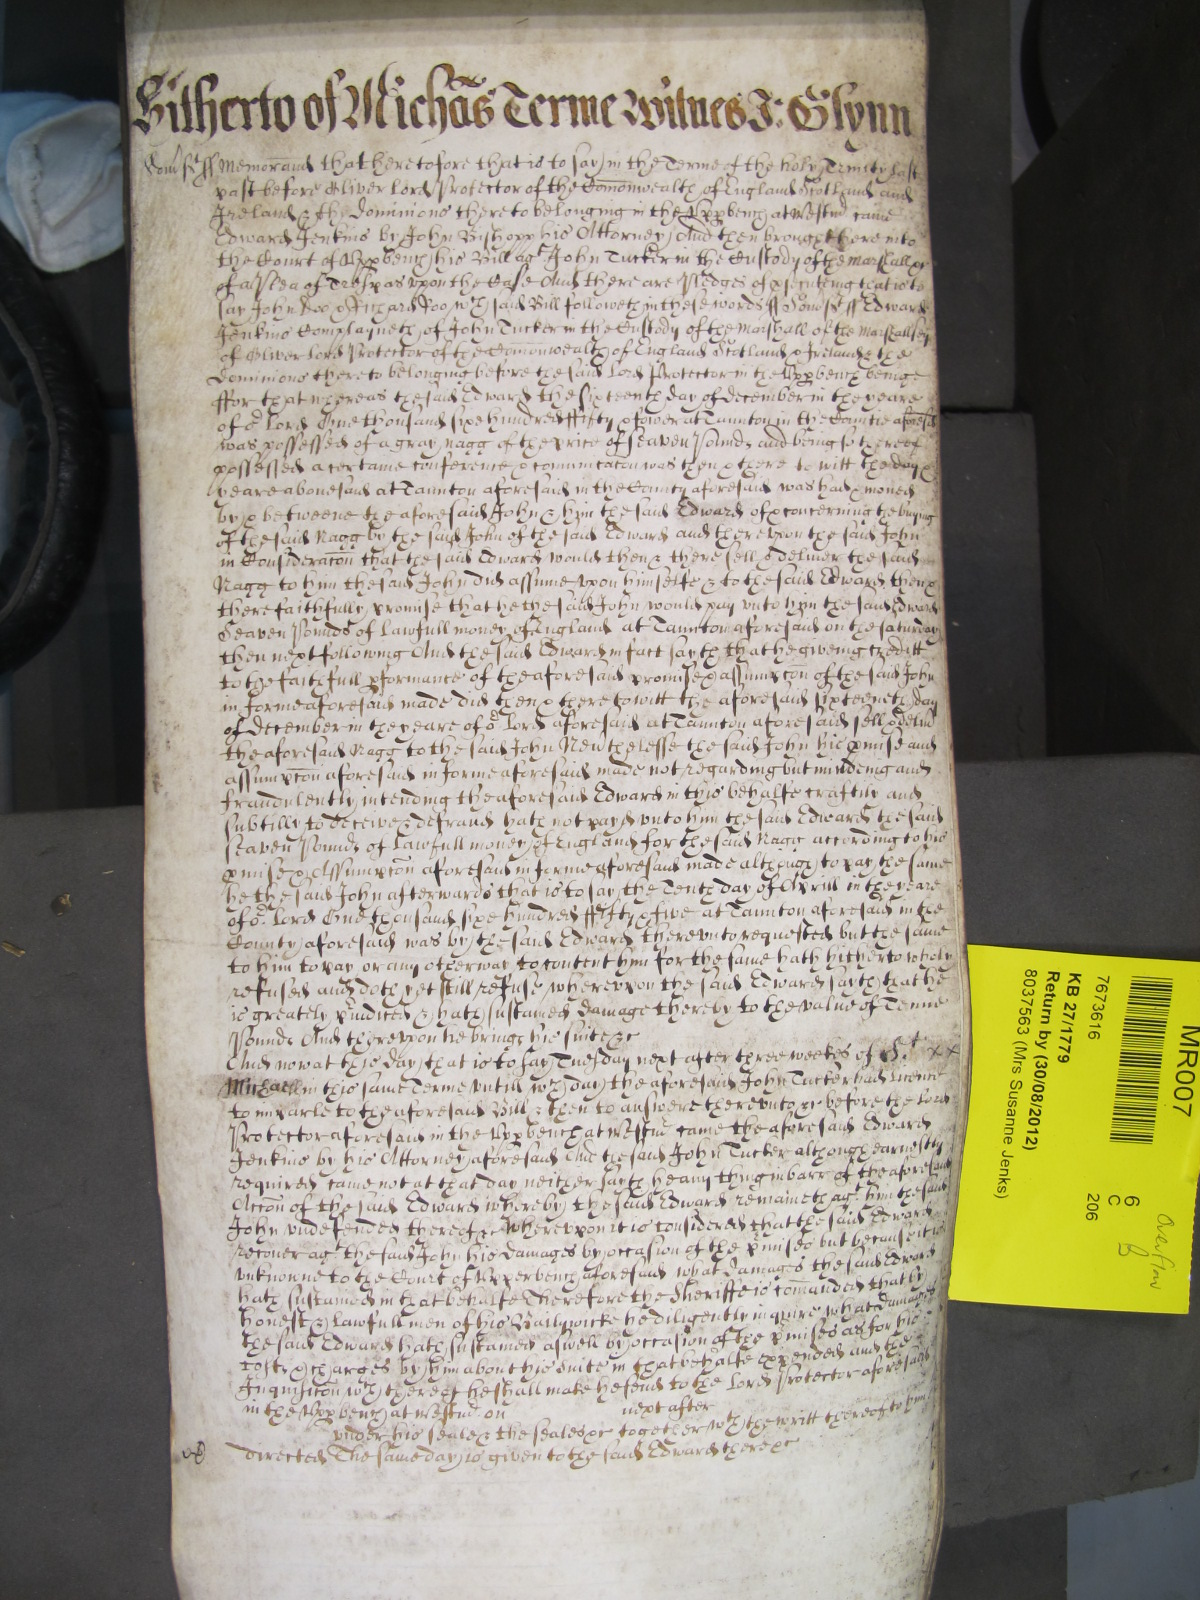 Hitherto of Michas Terme Witnes J: Glynn
Somst ss Memorand that heretofore that is to say in the Terme of the holy Trinity last
past before Oliver Lord Protector of the Comonwealth of England Scotland and
Ireland & the dominions thereto belonging in the Uppbench at Westm came
Edward Jenkins by John Bishopp his Attorney And then brought here into
the Court of Uppbench his Bill agt John Tucker in the Custody of the Marshall &c
of a Plea of Trespas upon the Case And there are Pledges of psecuteing that is to
say John Doo & Richard Roo wch said Bill followeth in these words ss Somst ss Edward
Jenkins Complayneth of John Tucker in the Custody of the Marshall of the Marshallsey
of Oliver Lord Protector of the Comonwealth of England Scotland & Ireland & the
dominions thereto belonging before the said Lord Protector in the Uppbench beinge
ffor that whereas the said Edward the sixteenth day of december in the yeare
of or Lord One thousand sixe hundred ffifty & fower at Taunton in the Countie aforesd
was possessed of a gray nagg of the price of seaven Pounds and being so thereof
possessed a certaine conference & comunicacon was then & there to witt the day &
yeare abovesaid at Taunton aforesaid in the County aforesaid was had & moved
by & betweene the aforesaid John & him the said Edward of & concerning the buying
of the said Nagg by the said John of the said Edward and thereupon the said John
in Consideracon that the said Edward would then & there sell & deliver the said
Nagg to him the said John did assume upon himselfe & to the said Edward then &
there faithfully promise that he the said John would pay unto him the said Edward
Seaven Pounds of lawfull money of England at Taunton aforesaid on the saturday
then next following And the said Edward in fact sayth that he giveing creditt
to the faithfull pformance of the aforesaid promise & assumpcon of the said John
in forme aforesaid made did then & there to witt the aforesaid sixteenth day
of December in the yeare of or Lord aforesaid at Taunton aforesaid sell & deliv
the aforesaid Nagg to the said John Nevthelesse the said John his pmise and
assumpcon aforesaid in forme aforesaid made not regarding but mindeing and
fraudulently intending the aforesaid Edward in this behalfe craftily and
subtilly to deceive & defraud hath not payd unto him the said Edward the said
seaven Pounds of lawfull money of England for the said Nagg according to his
pmise & Assumpcon aforesaid in forme aforesaid made although to pay the same
he the said John afterwards that is to say the Tenth day of Aprill in the yeare
of or Lord One thousand sixe hundred ffifty & five at Taunton aforesaid in the
County aforesaid was by the said Edward thereunto requested but the same
to him to pay or any other way to content him for the same hath hitherto wholy
refused and doth yet still refuse whereupon the said Edward sayth that he
is greately pjudiced & hath sustained damage thereby to the value of Tenne
Pounds And thereupon he brings his suite &c
And now at this day that is to say Tuesday next after three weekes of St
Michaell in this same Terme untill wch day the aforesaid John Tucker had Licence
to imparle to the aforesaid Bill & then to answere thereunto &c before the Lord
Protector aforesaid in the Uppbench at Westm came the aforesaid Edward
Jenkins by his Attorney aforesaid And the said John Tucker although earnestly
required came not at that day neither sayth he any thing in barr of the aforesaid
Accon of the said Edward whereby the said Edward remaineth agt him the said
John undefended therefore &c Whereupon it is considered that the said Edward
recover agt the said John his damages by occasion of the pmises but because it is
unknowne to the Court of Upperbench aforesaid what damages the said Edward
hath sustained in that behalfe Therefore the Sheriffe is comanded that by
honest & lawfull men of his Bailywicke he diligently inquire what damages
the said Edward hath sustained aswell by occasion of the pmises as for his
costs & charges by him about his suite in that behalfe expended and the
Inquisicon wch thereof he shall make he send to the Lord Protector aforesaid
in the Uppbench at Westm on next after
under his seale & the seales &c together wth the writt thereof to him
directed The same day is given to the said Edward there &c
MR007
7673616
6
C
206
KB 27/1779
Return by (30/08/2012)
8037563 (Mrs Susanne Jenks)
Overflow
B